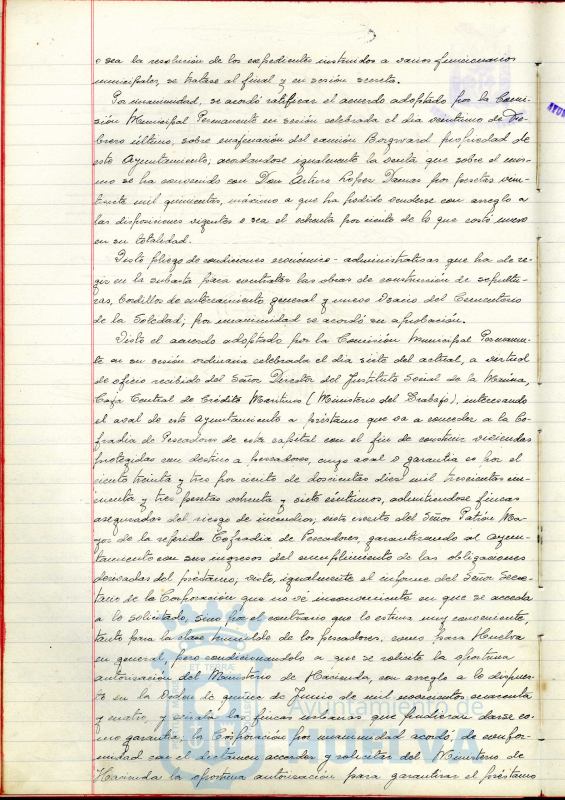 o sea la resolución de los expedientes instruidos a varios funcionarios
municipales, se tratase al final y en sesión secreta.
Por unanimidad, se acordó ratificar el acuerdo adoptado por la Comi-
sión Municipal Permanente en sesión celebrada el día veintiuno de Fe-
brero último, sobre enajenación del camión Borgward propiedad de
este Ayuntamiento, acordándose igualmente la venta que sobre el mis-
mo se ha convenido con Don Arturo López Damas por pesetas vein-
titres mil quinientas, máximo a que ha podido venderse con arreglo a
las disposiciones vigentes o sea el ochenta por ciento de lo que costó nuevo
en su totalidad.
Visto pliego de condiciones económico-administrativas que ha de re-
gir en la subasta para contratar las obras de construcción de sepultu-
ras, bordillos de enterramiento general y nuevo Osario del Cementerio
de la Soledad; por unanimidad se acordó su aprobación.
Visto el acuerdo adoptado por la Comisión Municipal Permanen-
te en su sesión ordinaria celebrada el día siete del actual, a virtud
de oficio recibido del Señor Director del Instituto Social de la Marina,
Caja Central de Crédito Marítimo (Ministerio del Trabajo), interesando
el aval de este Ayuntamiento a préstamo que va a conceder a la Co-
fradía de Pescadores de esta capital con el fin de construir viviendas
protegidas con destino a pescadores, cuyo aval o garantía es por el
ciento treinta y tres por ciento de doscientas diez mil trescientas cin-
cuenta y tres pesetas ochenta y siete céntimos, admitiéndose fincas
aseguradas del riesgo de incendios; visto escrito del Señor Patrón Ma-
yor de la referida Cofradía de Pescadores, garantizando al Ayun-
tamiento con sus ingresos del cumplimiento de las obligaciones
derivadas del préstamo, visto, igualmente el informe del Señor Secre-
tario de la Corporación que no vé inconveniente en que se acceda
a lo solicitado, sino por el contrario que lo estima muy conveniente,
tanto para la clase humilde de los pescadores, como para Huelva
en general, pero condicionándolo a que se solicite la oportuna
autorización del Ministerio de Hacienda, con arreglo a lo dispues-
to en la Orden de quince de Junio de mil novecientos cuarenta
y cuatro, y señala las fincas urbanas que pudieran darse co-
mo garantía, la Corporación, por unanimidad acordó, de confor-
midad con el dictamen acceder y solicitar del Ministerio de
Hacienda la oportuna autorización para garantizar el préstamo
Ayuntamiento de
HUELVA